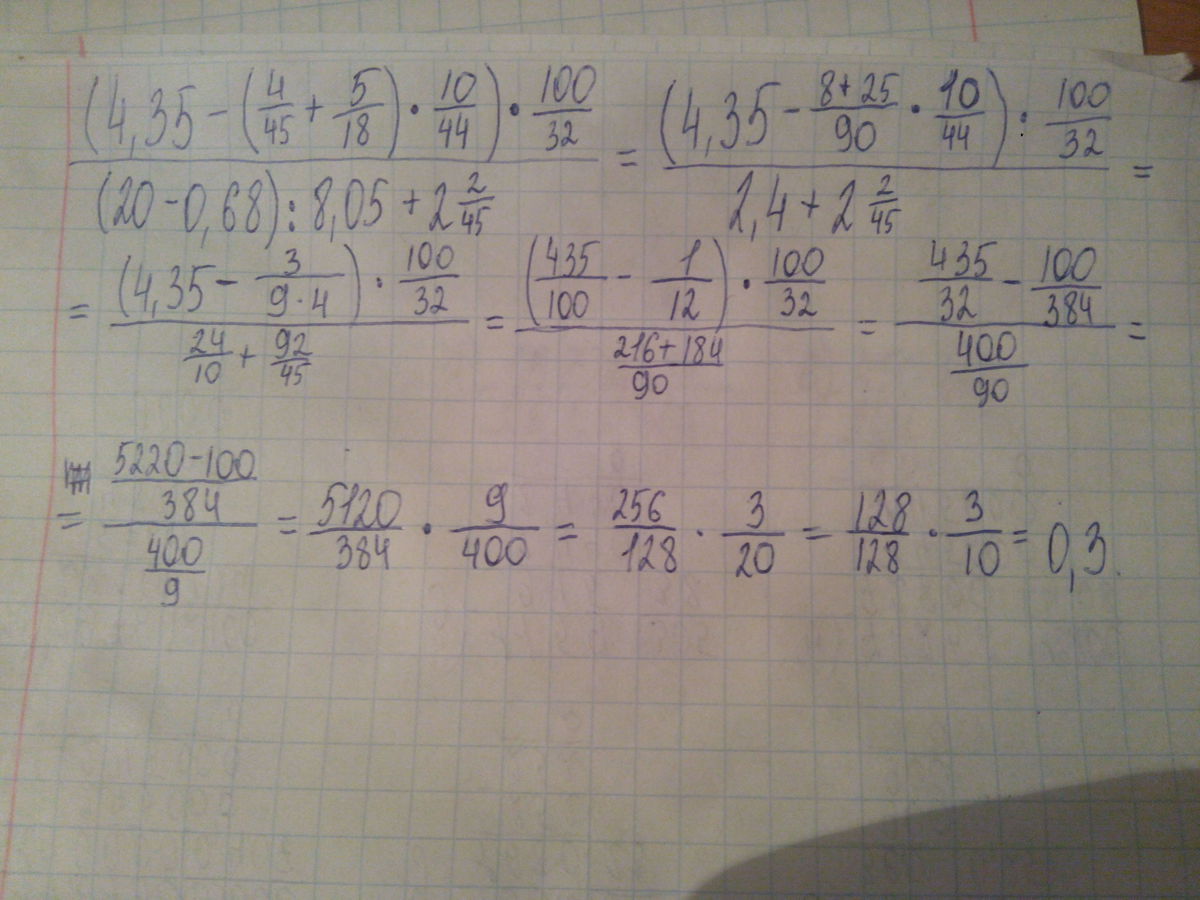 (4,35 - (4/45 + 5/18) · 10/44) · 100/32 / (20 - 0,68) : 8,05 + 2 2/45 = (4,35 - 8+25/90 · 10/44) · 100/32 / 2,4 + 2 2/45 =
= (4,35 - 3/9·4) · 100/32 / 24/10 + 92/45 = (435/100 - 1/12) · 100/32 / 216+184/90 = 435/32 - 100/384 / 400/90 =
= 5220-100/384 / 400/9 = 5120/384 · 9/400 = 256/128 · 3/20 = 128/128 · 3/10 = 0,3.